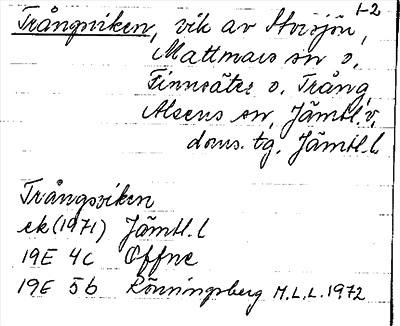 1-2
Trångviken, vik av Storsjön,
Mattmars sn o.
Finnsäter o. Trång,
Alsens sn, Jämtl. v.
doms. tg. Jämtl. l
Trångsviken
ek (1971) Jämtl. l
19E 4c Offne
19E 5b Rönningsberg M.L.L. 1972